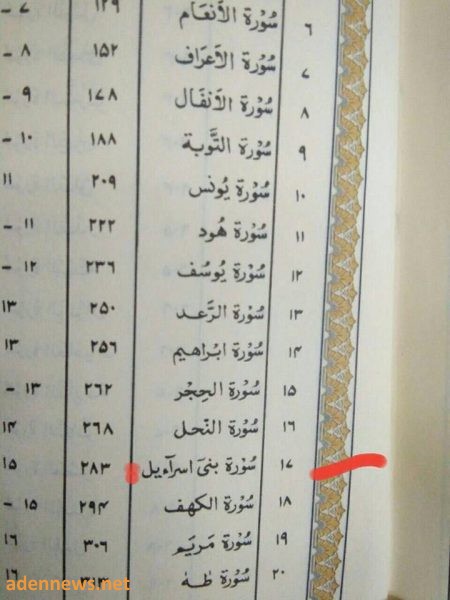 ٦ سُوْرَة الأَنعَام ١٢٩ ٧ -
٧ سُوْرَة الأَعرَاف ١٥٢ ٨ -
٨ سُوْرَة الأَنفَال ١٧٨ ٩ -
٩ سُوْرَة التَّوبَة ١٨٨ ١٠ -
١٠ سُوْرَة يُونس ٢٠٩ ١١
١١ سُوْرَة هُود ٢٢٢ ١١ -
١٢ سُوْرَة يُوسُف ٢٣٦ ١٢ -
١٣ سُوْرَة الرَّعد ٢٥٠ ١٣
١۴ سُوْرَة ابراهيم ٢٥٦ ١٣
١٥ سُوْرَة الحِجْر ٢٦٢ ١٣ -
١٦ سُوْرَة النّحل ٢٦٨ ١۴
١٧ سُوْرَة بنىٓ اسرآءيل ٢٨٣ ١٥
١٨ سُوْرَة الكهف ٢٩۴ ١٥ -
١٩ سُوْرَة مَريَم ٣٠٦ ١٦
٢٠ سُوْرَة طٰهٰ ١٦
adennews.net